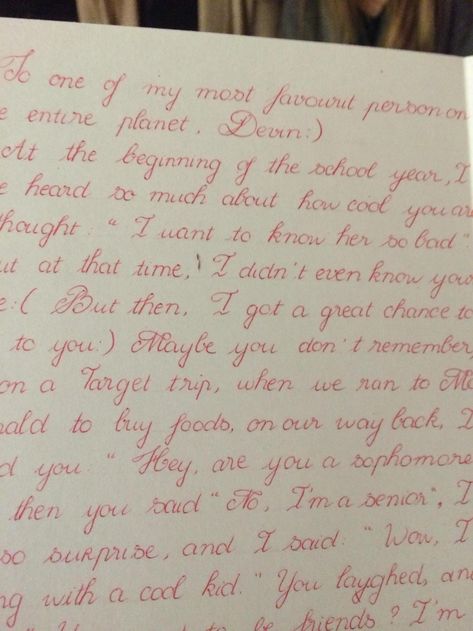 To one of my most favourit person on
e entire planet, Devin:)
At the beginning of the school year, I
e heard so much about how cool you are
thought: "I want to know her so bad"
ut at that time, I didn't even know you
e:( But then, I got a great chance to
to you:) Maybe you don't remember
on a Target trip, when we ran to Mc
nald to buy foods, on our way back, I
d you: "Hey, are you a sophomore
then you said "No, I'm a senior", I
so surprise, and I said: "Wow, I
ng with a cool kid." You layghed, and
to be friends? I'm